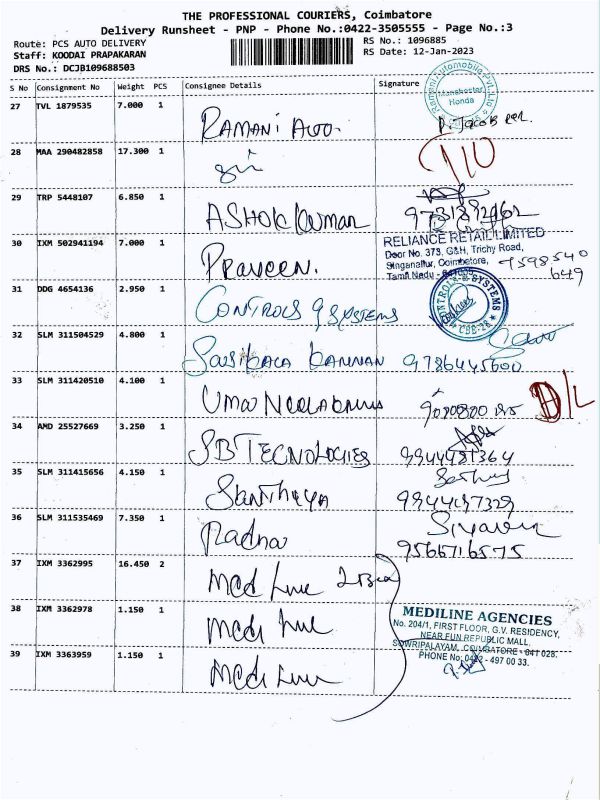 THE PROFESSIONAL COURIERS, Coimbatore
Delivery Runsheet - PNP - Phone No.:0422-3505555 - Page No.:3
Route: PCS AUTO DELIVERY
RS No.: 1096885
Staff: KOODAI PRAPAKARAN
RS Date: 12-Jan-2023
DRS No.: DCJB109688503
S No Consignment No Weight PCS Consignee Details Signature
Manchester
Honda
27 TVL 1879535 7.000 1
RAMANI Auto.
28 MAA 290482858 17.300 1
T/O
29 TRP 5448107 6.850 1
ASHOK Kumar
30 IXM 502941194 7.000 1
Praveen.
RELIANCE RETAIL LIMITED
Door No. 373, G&H, Trichy Road,
Singanallur, Coimbatore,
Tamil Nadu
9598540
649
31 DDG 4654136 2.950 1
CONTROLS & SYSTEMS
CONTROLS & SYSTEMS
CBE-28
32 SLM 311504529 4.800 1
Sasikala Kannan 9786445600
33 SLM 311420510 4.100 1
Uma D/L
34 AMD 25527669 3.250 1
SB TECNOLOGIES 9944481364
35 SLM 311415656 4.150 1
Santhiya 9944497329
36 SLM 311535469 7.350 1
Radha 9566716575
37 IXM 3362995 16.450 2
Medi Line
38 IXM 3362978 1.150 1
Medi Line
MEDILINE AGENCIES
No. 204/1, FIRST FLOOR, G.V. RESIDENCY,
NEAR FUN REPUBLIC MALL,
SOWRIPALAYAM, COIMBATORE - 641 028.
PHONE No: 0422 - 497 00 33.
39 IXM 3363959 1.150 1
Medi Line